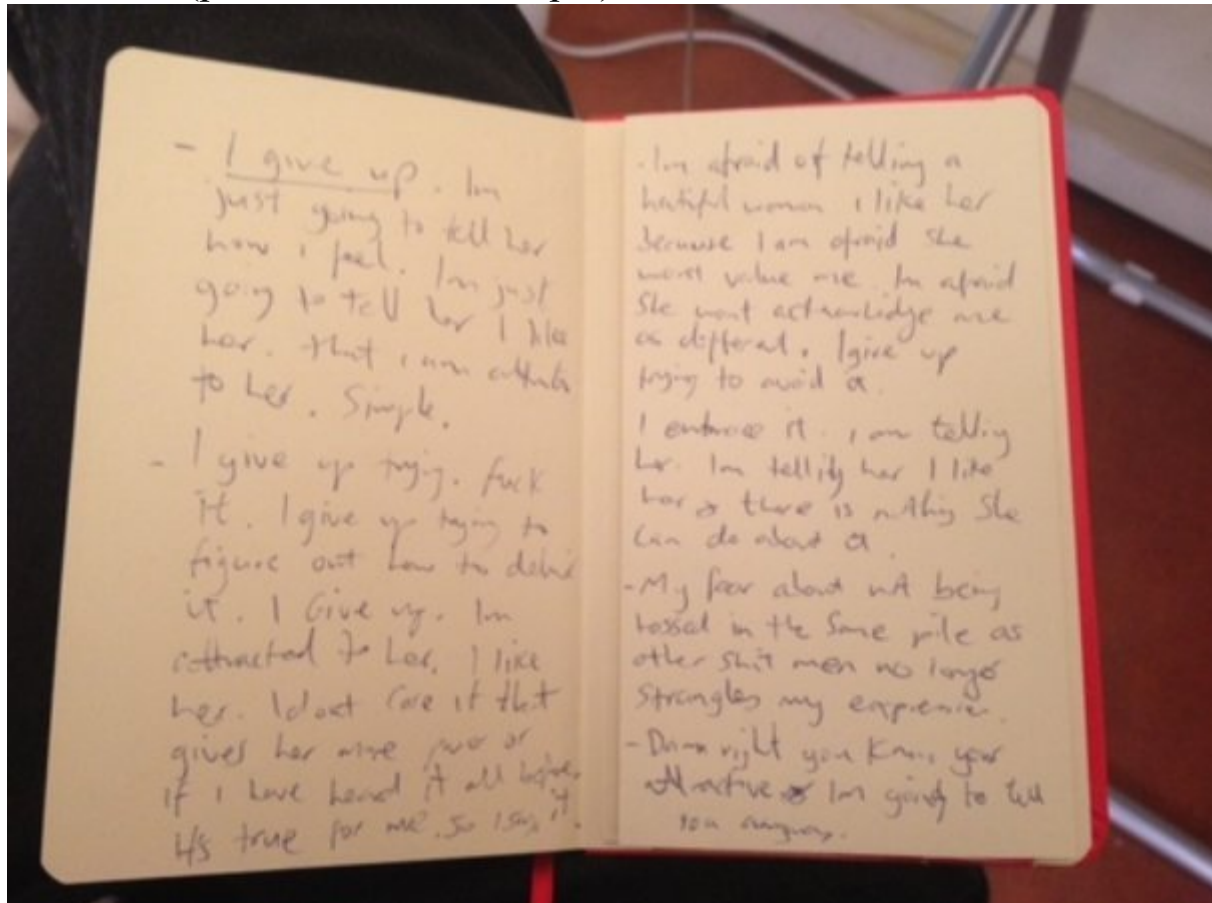 - I give up. Im
just going to tell her
how i feel. Im just
going to tell her I like
her. that i am
to her. Simple.
- I give up trying. fuck
it. I give up trying to
figure out how to
it. I Give up. Im
attracted to her. I like
her. I dont care if that
gives her more power or
if I have heard it all before.
It's true for me. So I say it.
- Im afraid of telling a
beautiful woman i like her
because I am afraid she
wont value me. Im afraid
She wont acknowledge me
as different. I give up
trying to avoid it.
I embrace it. i am telling
her. Im telling her I like
her & there is nothing She
can do about it.
- My fear about not being
tossed in the Same pile as
other shit men no longer
strangles my
- Damn right you know your
attractive & Im going to tell
you anyway.